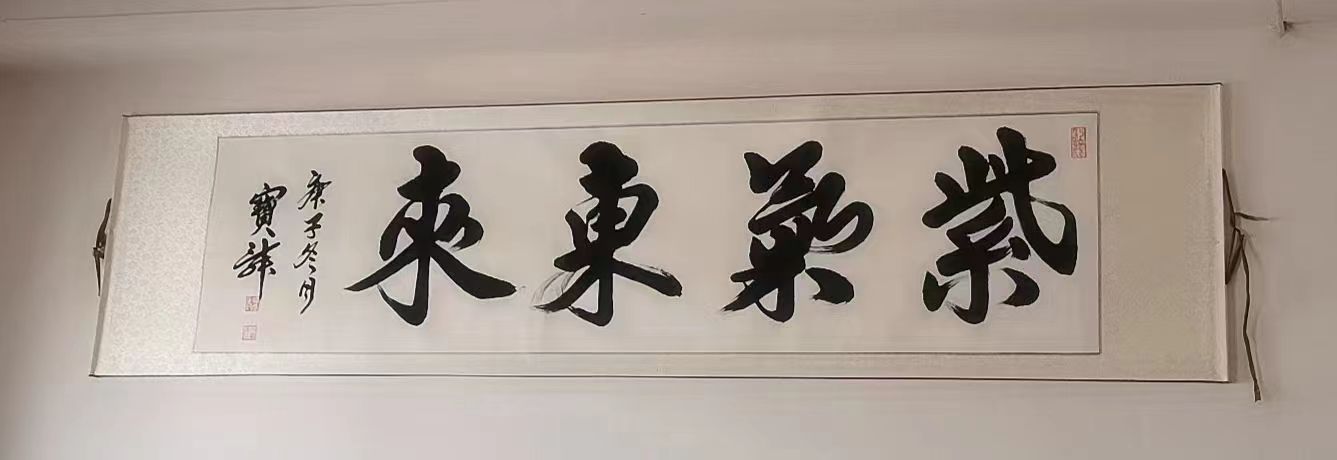 紫氣東來
庚子冬月
寶